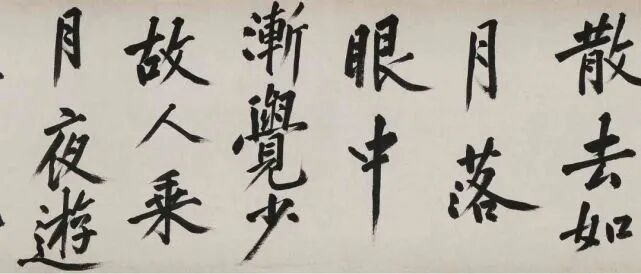 散去如
月落
眼中
漸覺少
故人乘
月夜遊